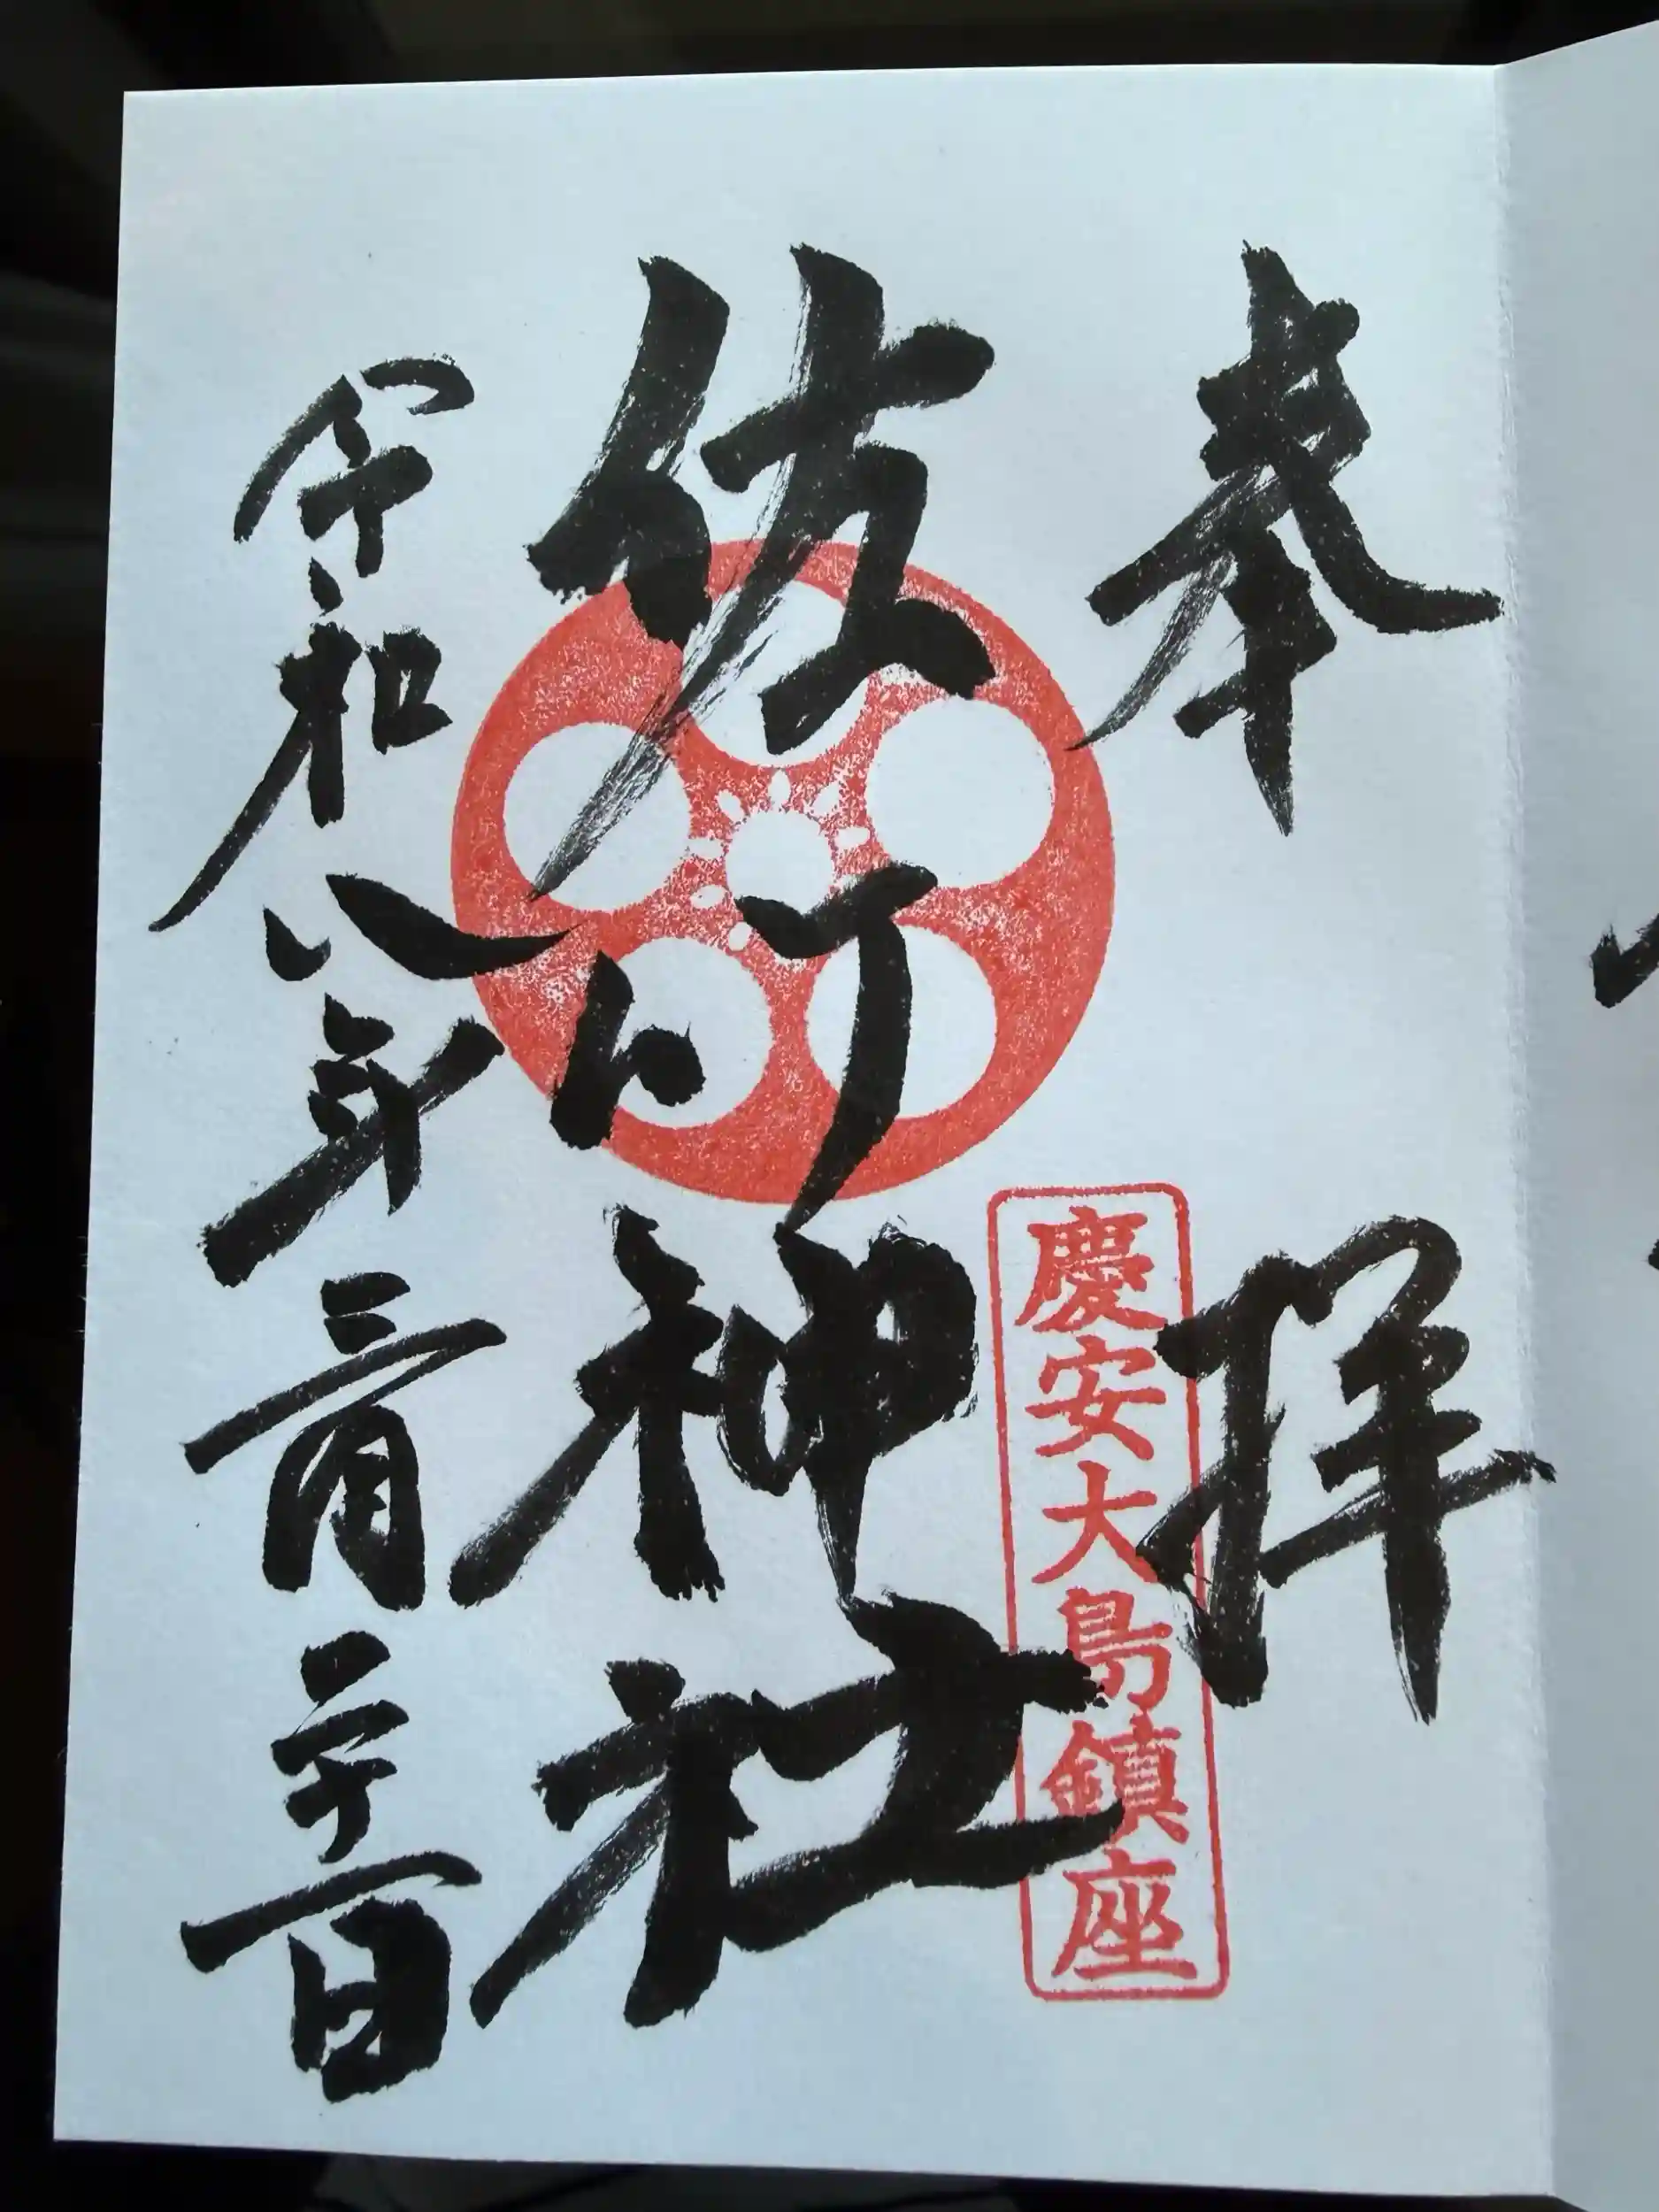 奉拝
慶安大島鎮座
神社
令和八年三月二十一日